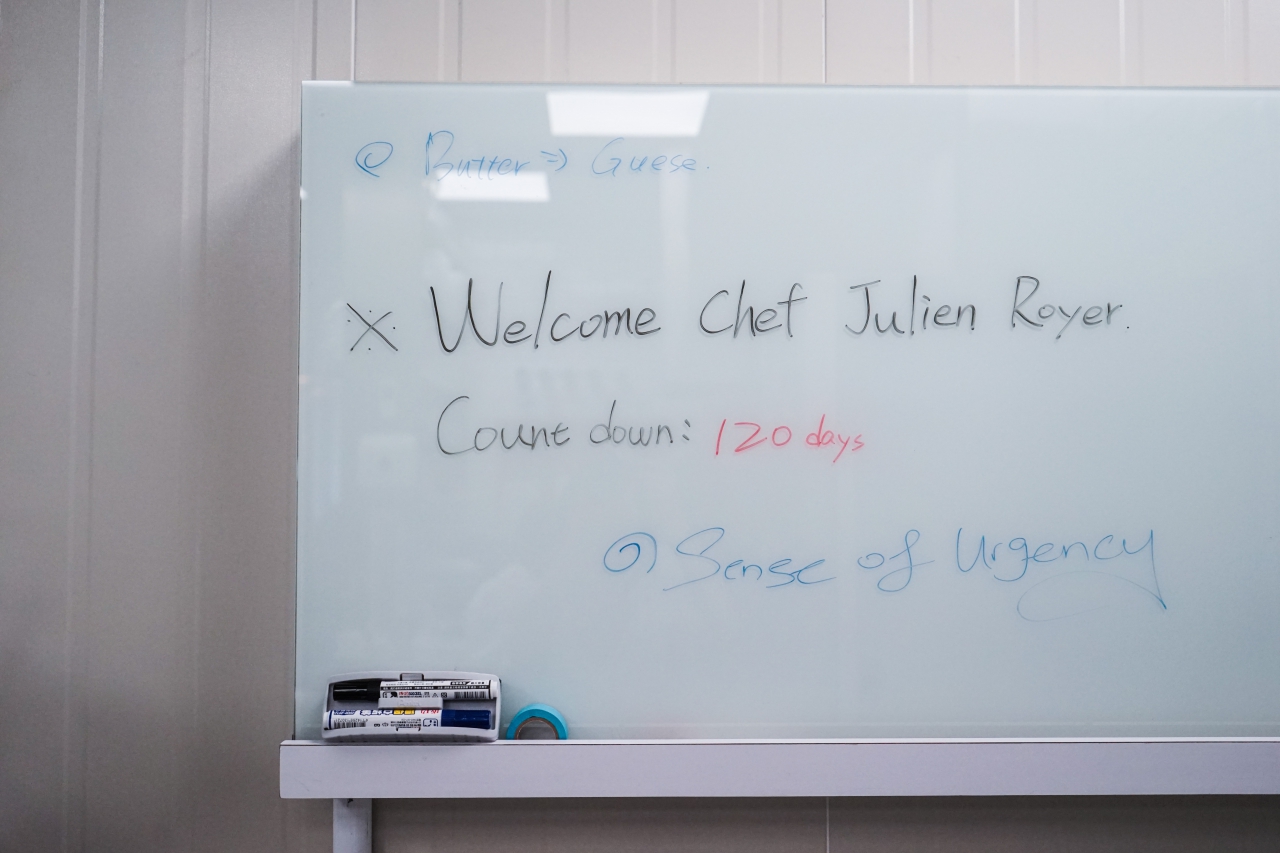 @ Butter => Guese.
※ Welcome Chef Julien Royer.
Count down: 120 days
Sense of Urgency